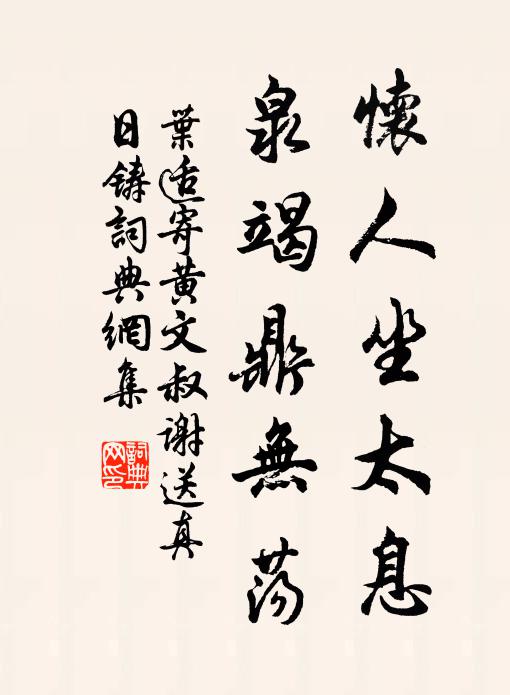 懷人坐太息
泉竭鼎無蕩
葉适寄黃文叔謝送真
日鑄詞典網集
詞典
网印